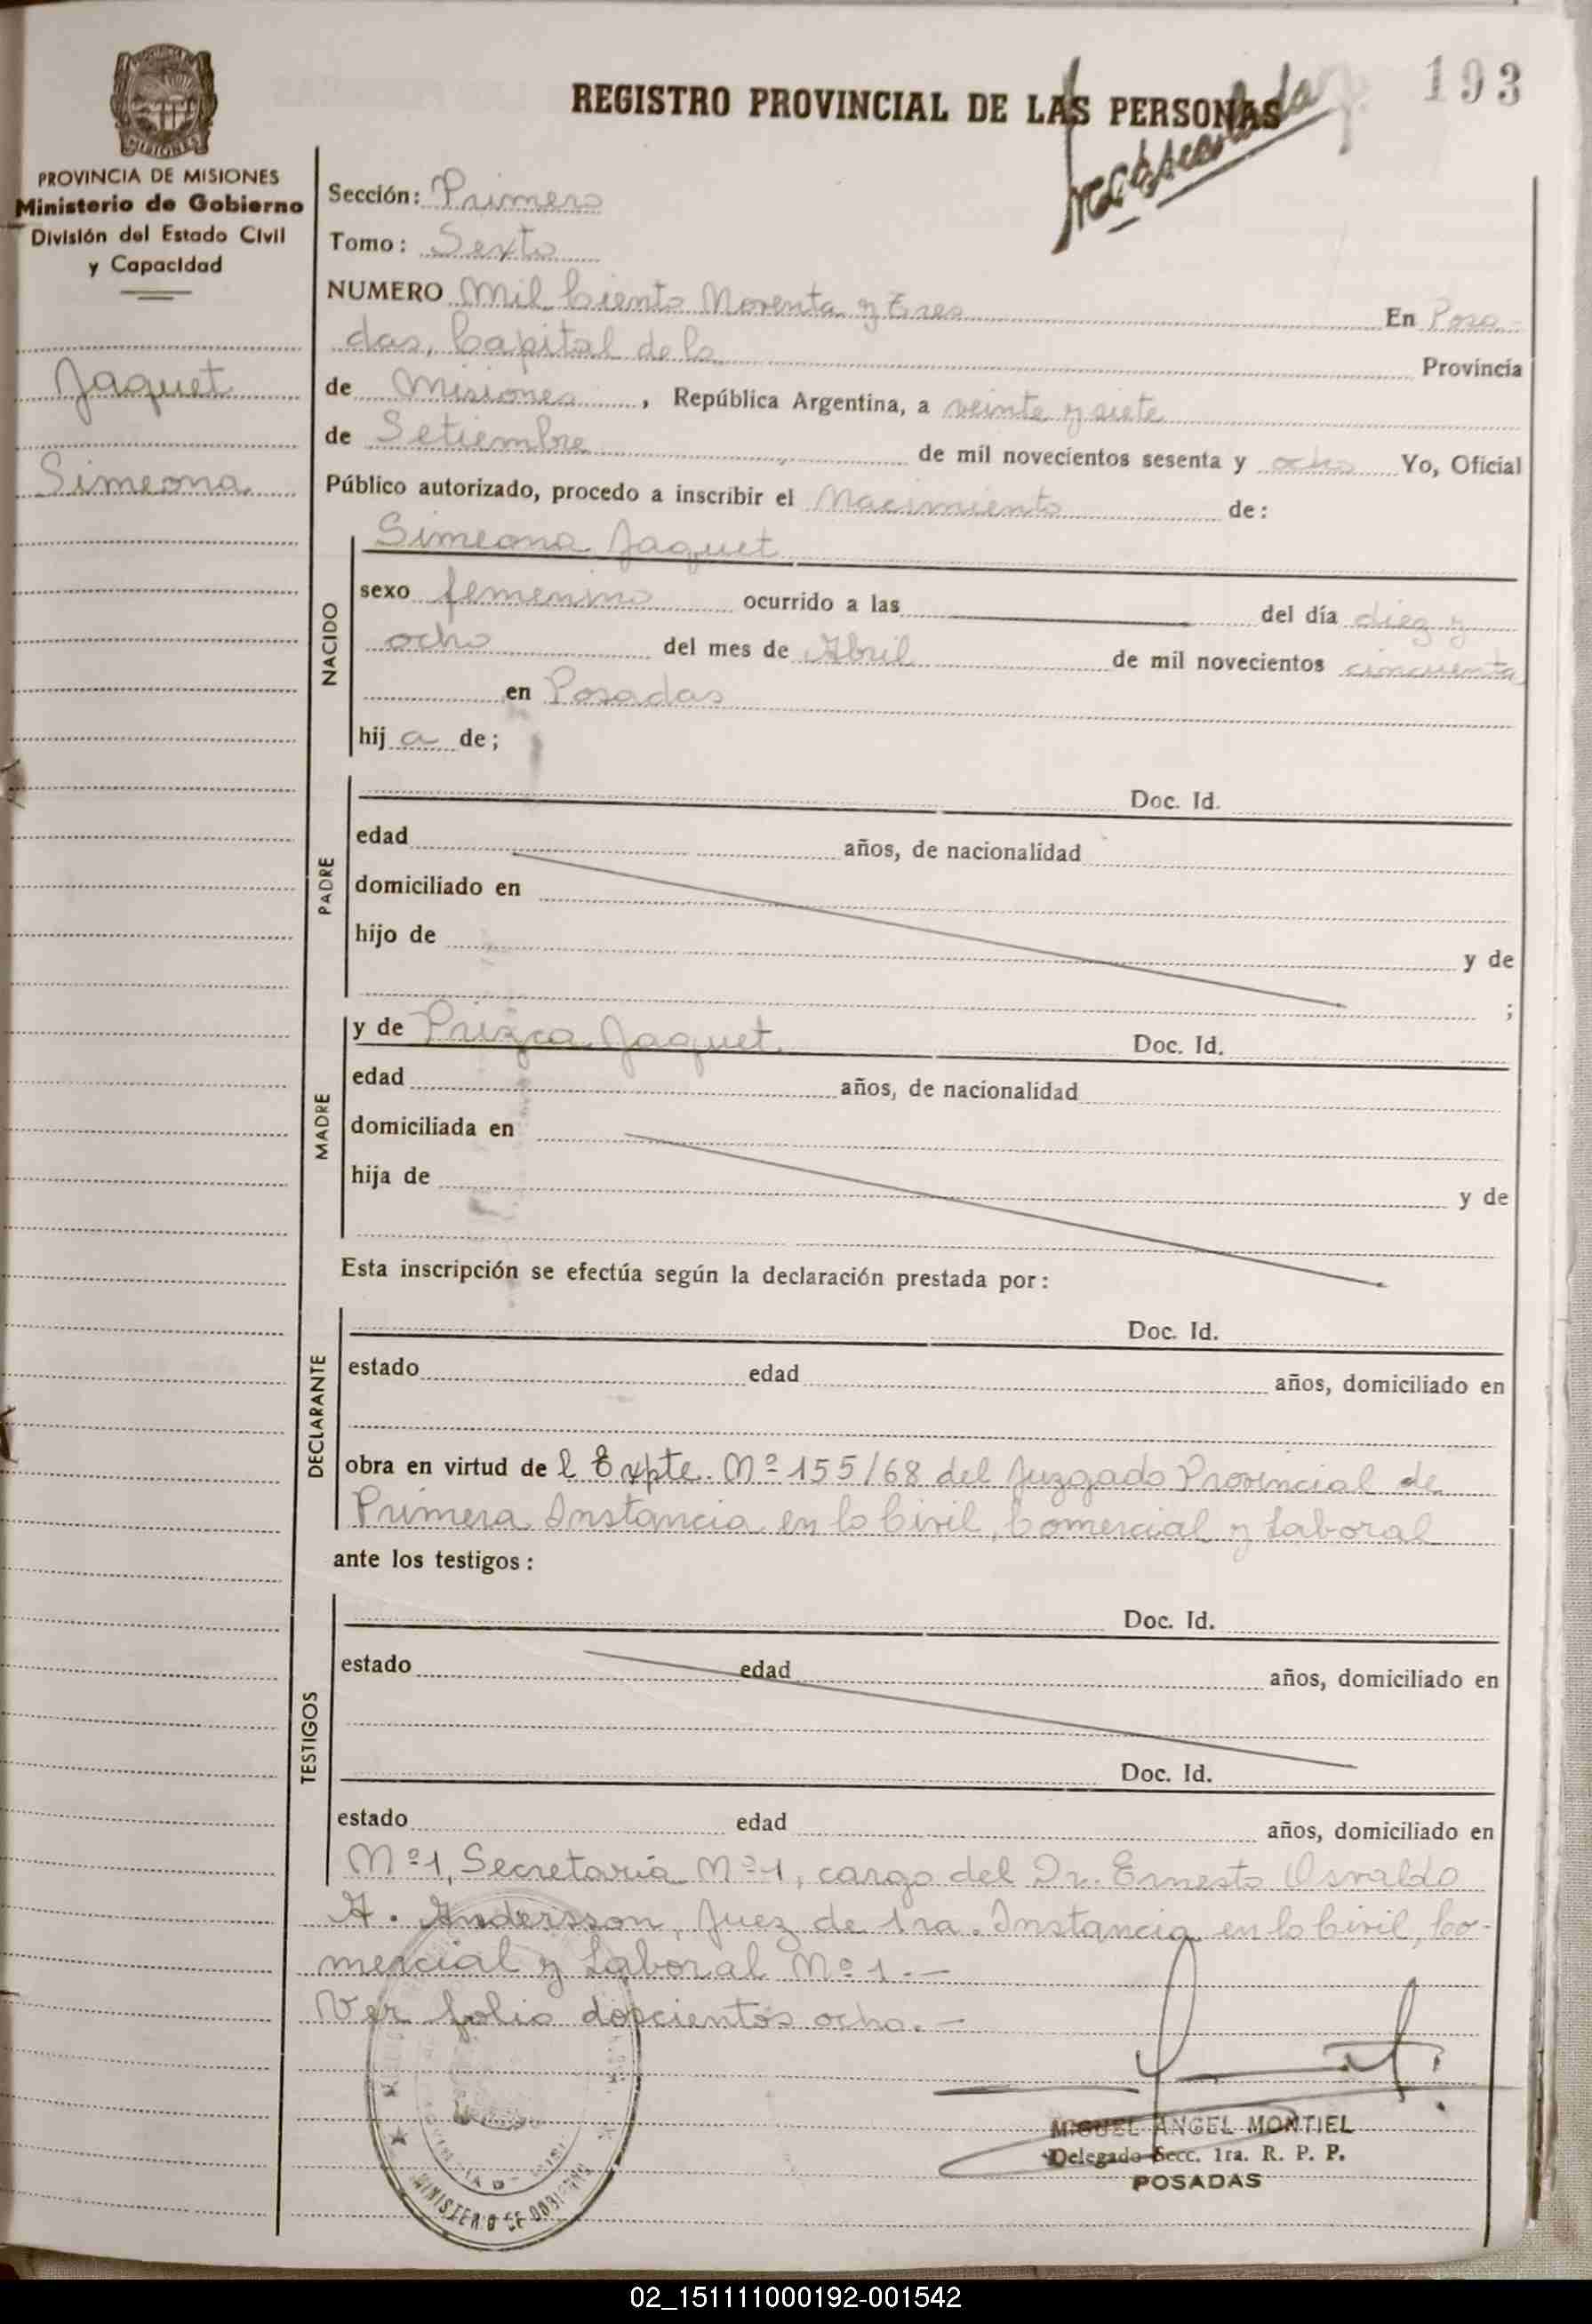 193
REGISTRO PROVINCIAL DE LAS PERSONAS
MISIONES
PROVINCIA DE MISIONES
Ministerio de Gobierno
División del Estado Civil
y Capacidad
Jaquet
Simeona
Sección: Primera
Tomo: Sexto
NUMERO Mil Ciento Noventa y Tres En Posa-
das, Capital de la Provincia
de Misiones, República Argentina, a veinte y siete
de Setiembre de mil novecientos sesenta y ocho Yo, Oficial
Público autorizado, procedo a inscribir el Nacimiento de:
NACIDO
Simeona Jaquet
sexo femenino ocurrido a las del día diez y
ocho del mes de Abril de mil novecientos cincuenta
en Posadas
hij a de;
PADRE
Doc. Id.
edad años, de nacionalidad
domiciliado en
hijo de y de
;
MADRE
y de Prizca Jaquet Doc. Id.
edad años, de nacionalidad
domiciliada en
hija de y de
Esta inscripción se efectúa según la declaración prestada por:
DECLARANTE
Doc. Id.
estado edad años, domiciliado en
obra en virtud de l Expte. Nº 155/68 del Juzgado Provincial de
Primera Instancia en lo Civil, Comercial y Laboral
ante los testigos:
TESTIGOS
Doc. Id.
estado edad años, domiciliado en
Doc. Id.
estado edad años, domiciliado en
Nº 1, Secretaría Nº 1, cargo del Dr. Ernesto Osvaldo
A. Andersson, Juez de 1ra. Instancia en lo Civil, Co-
mercial y Laboral Nº 1.-
Ver folio doscientos ocho.-
MINISTERIO DE GOBIERNO
MIGUEL ANGEL MONTIEL
Delegado Secc. 1ra. R. P. P.
POSADAS
02_151111000192-001542